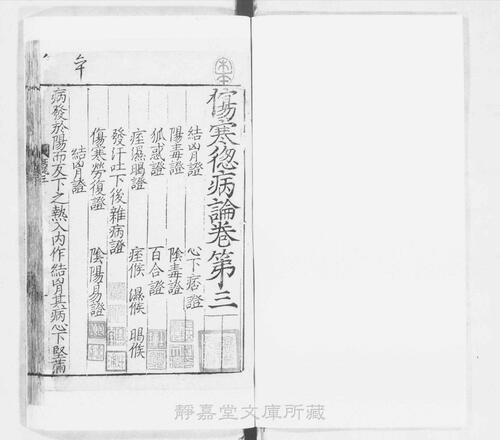 傷寒緫病論卷第三
結胷證　心下痞證
陽毒證　陰毒證
狐惑證　百合證
痓濕暍證　痓候　濕候　暍候
發汗吐下後雜病證
傷寒勞復證　陰陽易證
結胷證
病發於陽而反下之熱入內作結胷其病心下堅滿
靜嘉堂文庫所藏